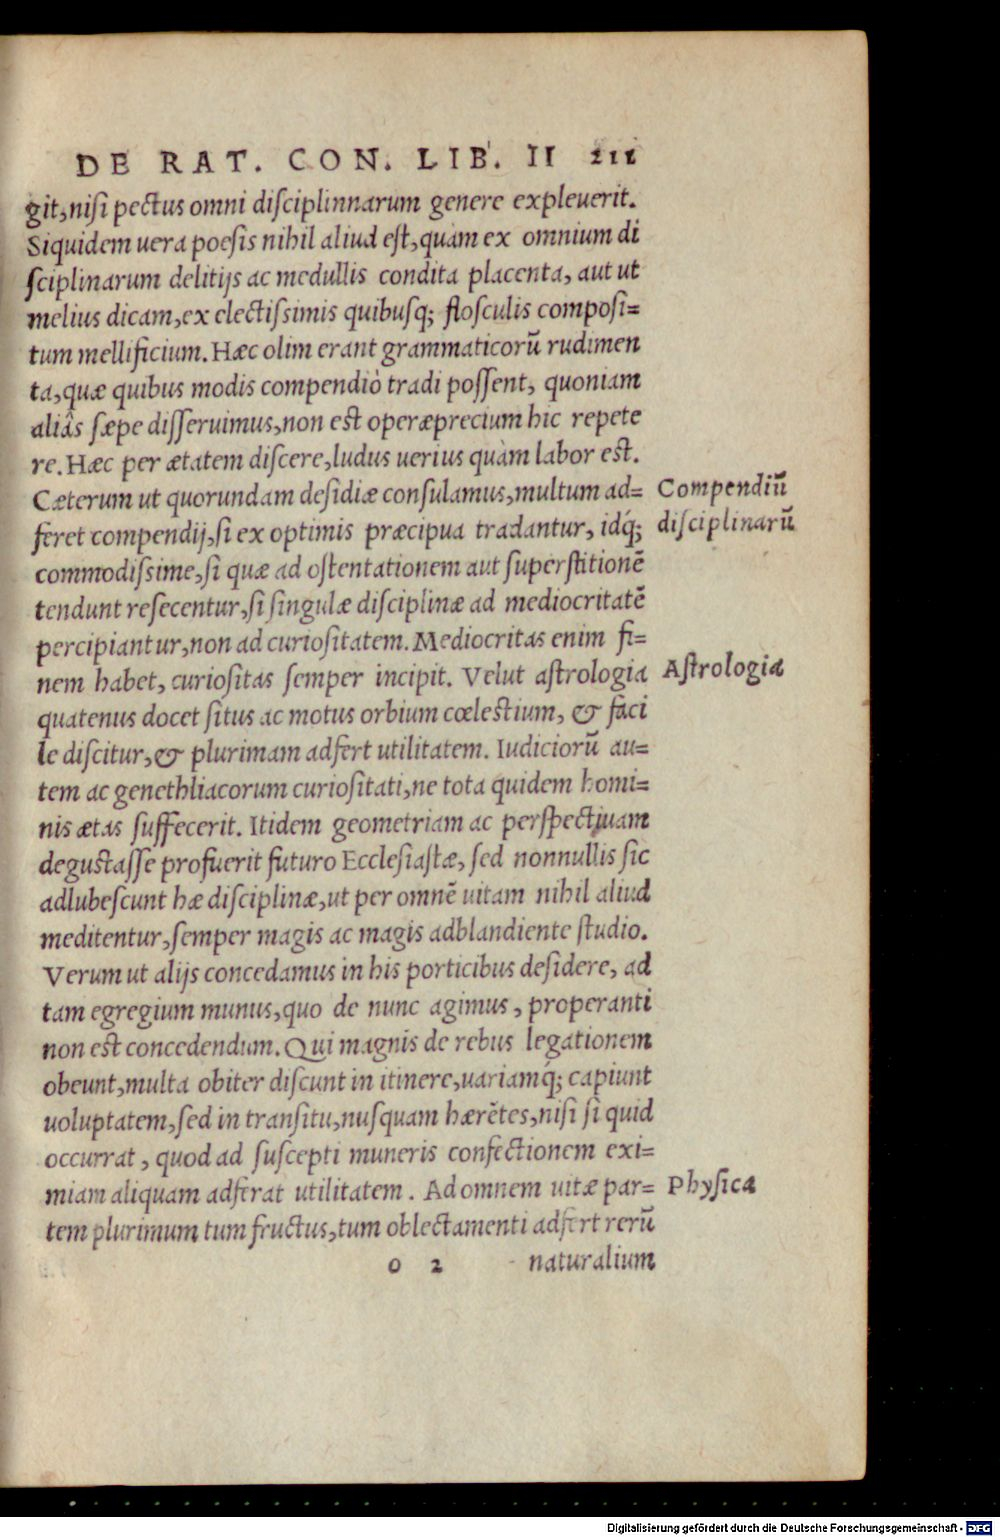 DE RAT. CON. LIB. II 211
git, nisi pectus omni disciplinnarum genere expleuerit.
Siquidem uera poesis nihil aliud est, quàm ex omnium di
sciplinarum delitijs ac medullis condita placenta, aut ut
melius dicam, ex electissimis quibusq; flosculis composi=
tum mellificium. Hæc olim erant grammaticorũ rudimen
ta, quæ quibus modis compendiò tradi possent, quoniam
aliâs sæpe disseruimus, non est operæprecium hic repete
re. Hæc per ætatem discere, ludus uerius quàm labor est.
Cæterum ut quorundam desidiæ consulamus, multum ad= Compendiũ
feret compendij, si ex optimis præcipua tradantur, idq́; disciplinarũ
commodissime, si quæ ad ostentationem aut superstitionẽ
tendunt resecentur, si singulæ disciplinæ ad mediocritatẽ
percipiantur, non ad curiositatem. Mediocritas enim fi=
nem habet, curiositas semper incipit. Velut astrologia Astrologia
quatenus docet situs ac motus orbium cœlestium, & faci
le discitur, & plurimam adfert utilitatem. Iudiciorũ au=
tem ac genethliacorum curiositati, ne tota quidem homi=
nis ætas suffecerit. Itidem geometriam ac perspectiuam
degustasse profuerit futuro Ecclesiastæ, sed nonnullis sic
adlubescunt hæ disciplinæ, ut per omnẽ uitam nihil aliud
meditentur, semper magis ac magis adblandiente studio.
Verum ut alijs concedamus in his porticibus desidere, ad
tam egregium munus, quo de nunc agimus, properanti
non est concedendum. Qui magnis de rebus legationem
obeunt, multa obiter discunt in itinere, uariamq́; capiunt
uoluptatem, sed in transitu, nusquam hærẽtes, nisi si quid
occurrat, quod ad suscepti muneris confectionem exi=
miam aliquam adferat utilitatem. Ad omnem uitæ par= Physica
tem plurimum tum fructus, tum oblectamenti adfert rerũ
o 2 naturalium
Digitalisierung gefördert durch die Deutsche Forschungsgemeinschaft - DFG